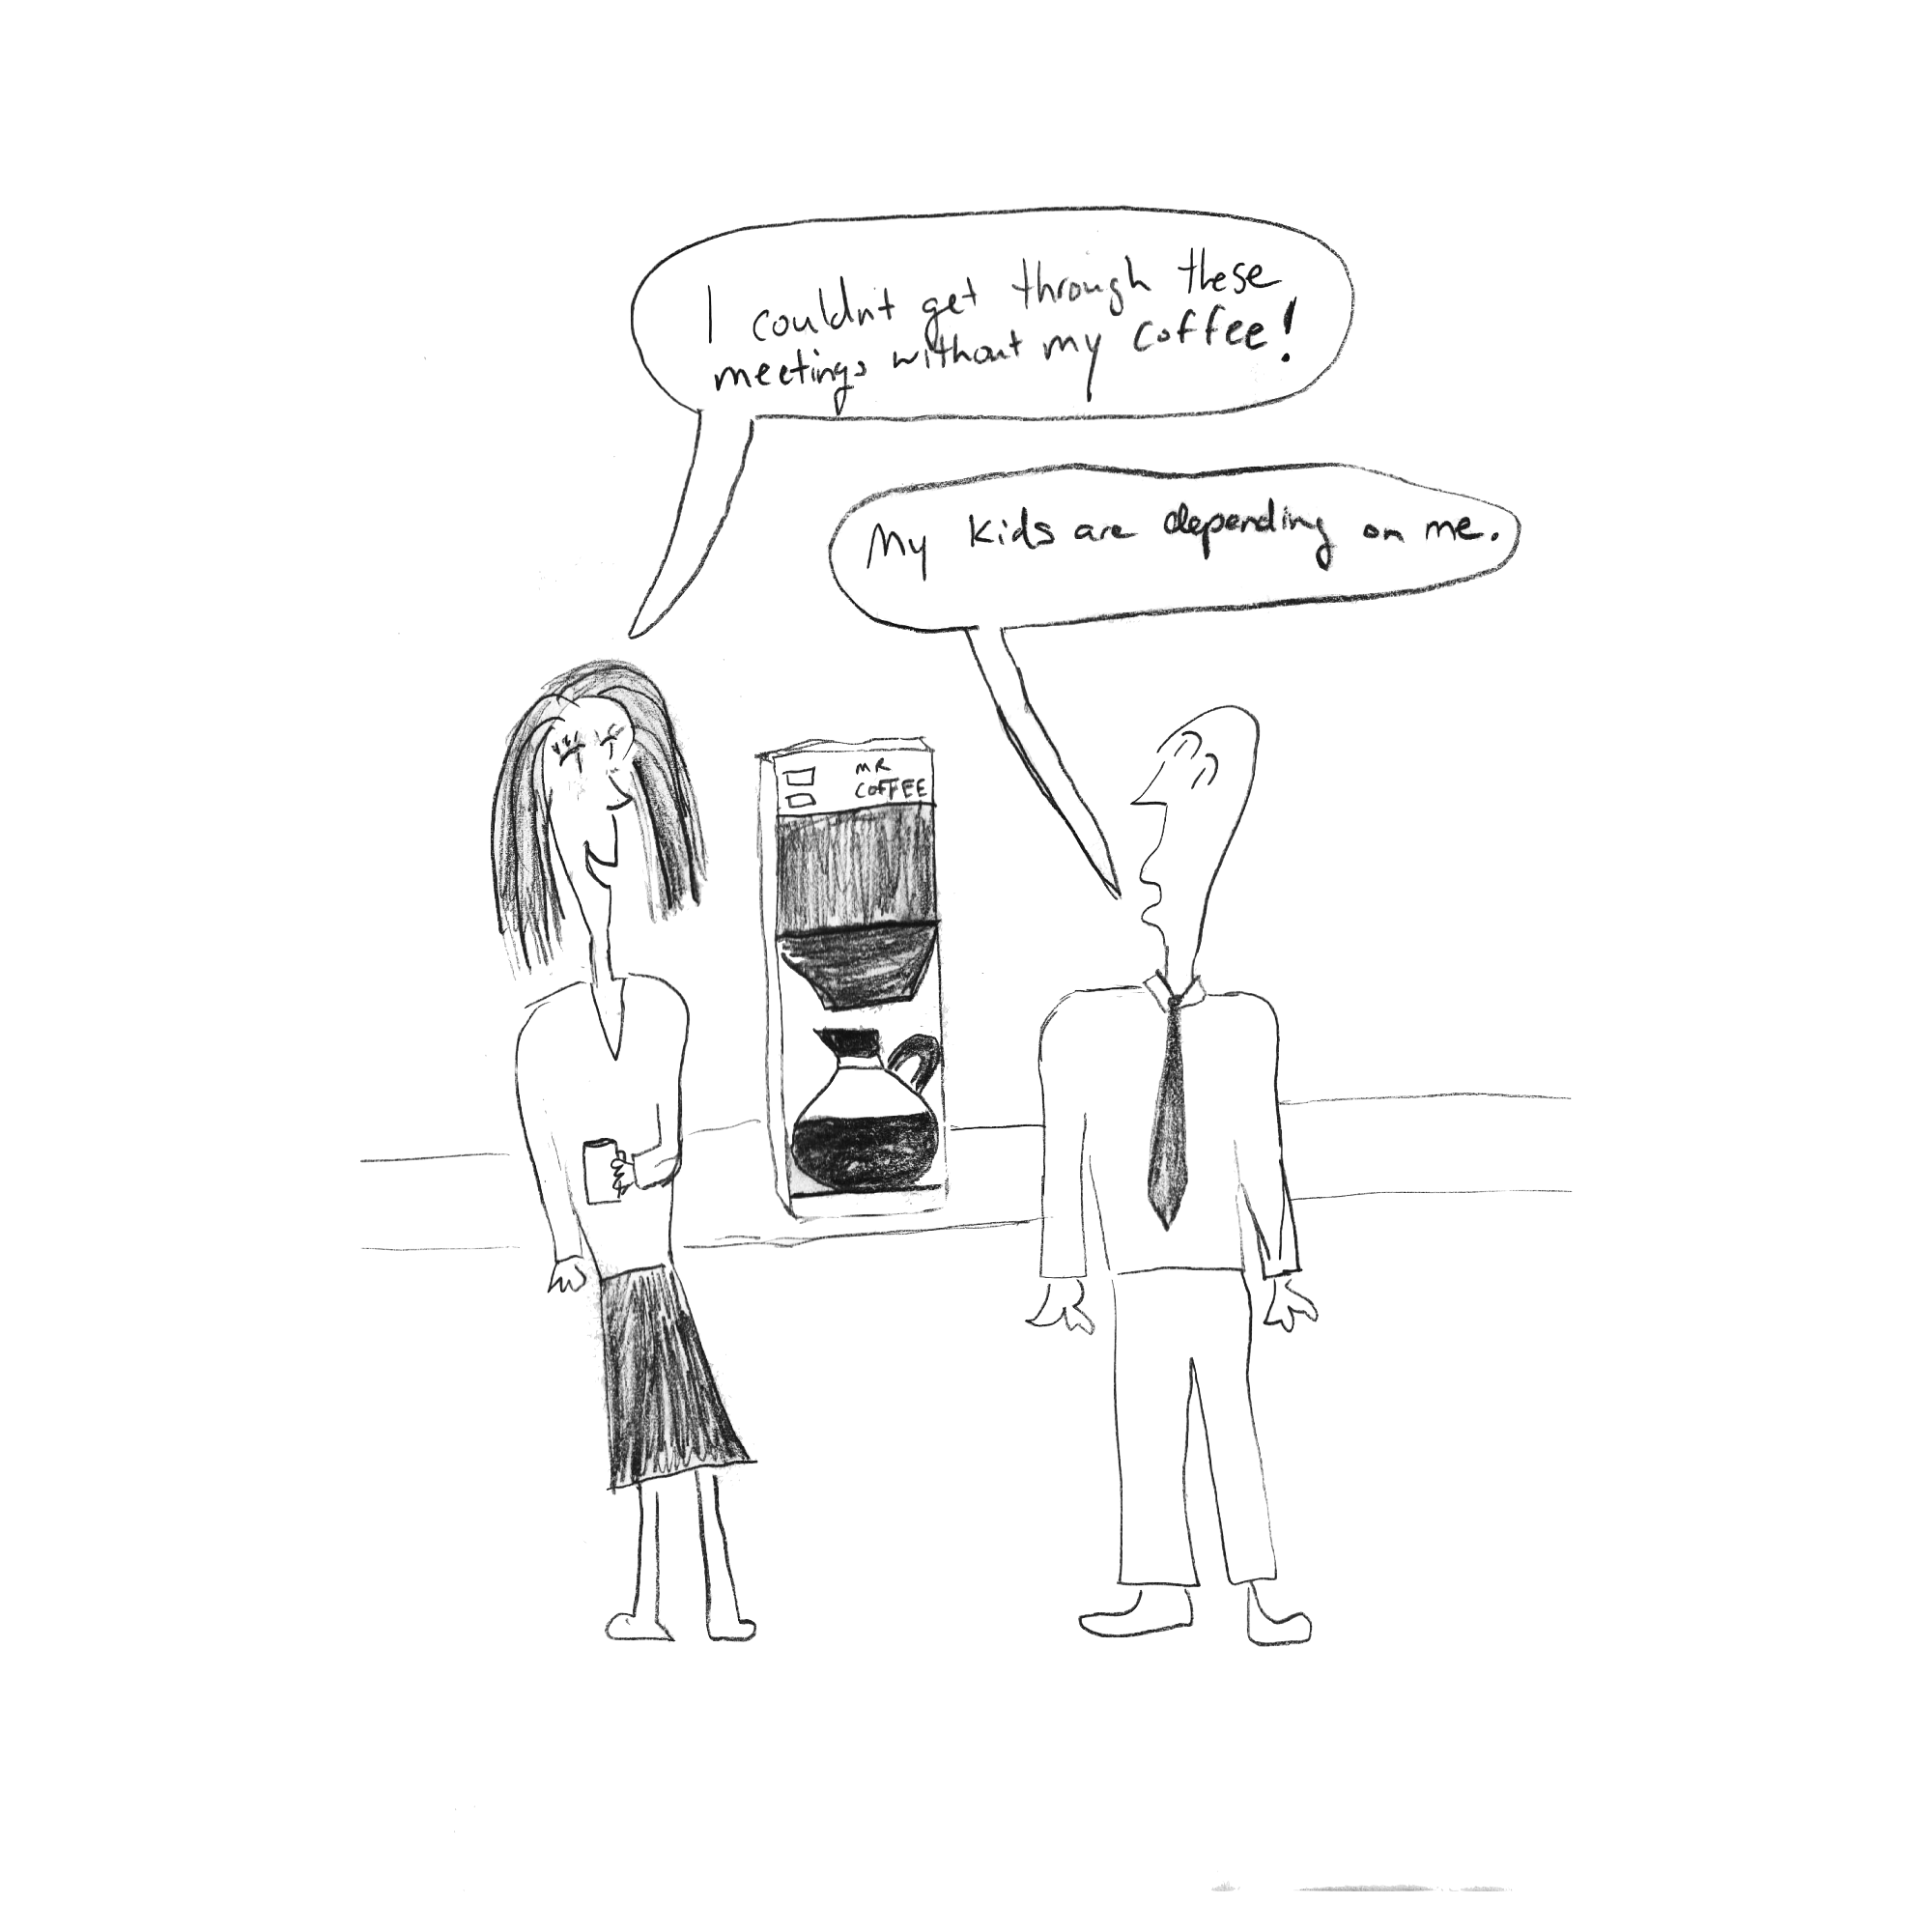 I couldn't get through these
meetings without my coffee!
My kids are depending on me.
MR
COFFEE